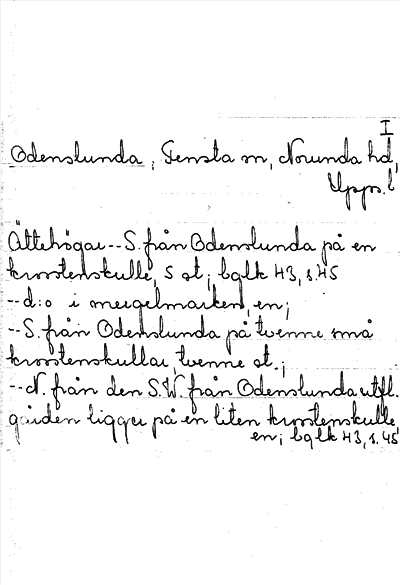 I
Odenslunda, Tensta sn, Norunda hd,
Upps. l
Ättehögar--S. från Odenslunda på en
krosstenskulle, 5 st; bglk 43, s.45
--d:o i mergelmarken, en;
--S. från Odenslunda på tvenne små
krosstenskullar, tvenne st.;
--N. från den S.W. från Odenslunda utfl.
gården ligger på en liten krosstenskulle,
en; bglk 43, s.45